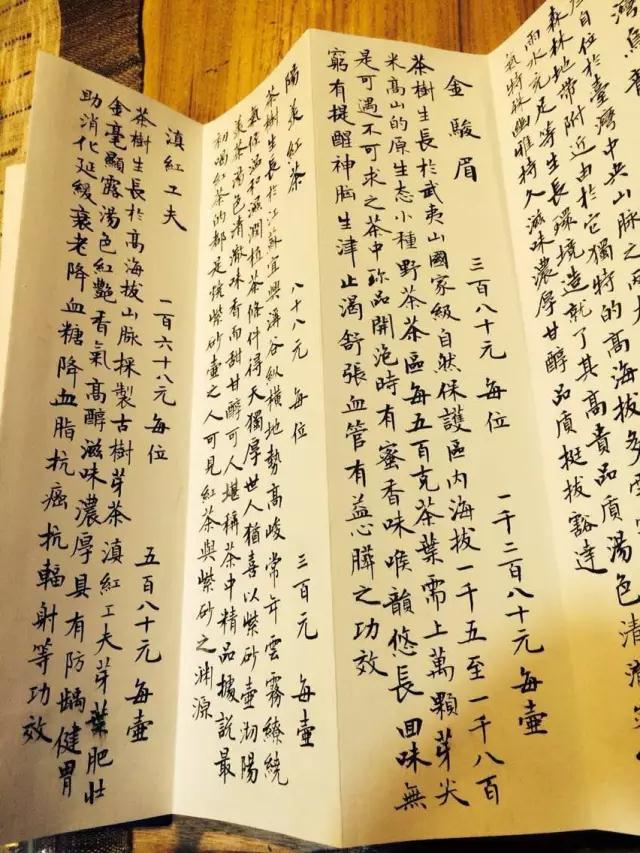 自位於臺灣中央山脈之兩大
森林地帶附近由於它獨特的高
雨水充足等生長環境造就了其高貴品質湯色清
氣特殊幽雅持久滋味濃厚甘醇品質挺拔豁達
金駿眉 三百八十元 每位 一千二百八十元 每壺
茶樹生長於武夷山國家級自然保護區內海拔一千五至一千八百
米高山的原生态小種野茶茶區每五百克茶葉需上萬顆芽尖
是可遇不可求之茶中珍品開泡時有蜜香味喉韻悠長回味無
窮有提醒神脑生津止渴舒張血管有益心臟之功效
陽羨紅茶 八十八元 每位 三百元 每壺
茶樹生長於江蘇宜興 谷纵橫地勢高峻常年雲霧繚繞
氣候温和濕潤植茶條件得天獨厚世人猶喜以紫砂壺沏陽
羨茶湯色清澈味香而甜甘醇可人堪稱茶中精品據說最
初喝紅茶的都是玩紫砂壺之人可見紅茶與紫砂之淵源
滇紅工夫 一百六十八元 每位 五百八十元 每壺
茶樹生長於高海拔山脈採製古樹芽茶滇紅工夫芽葉肥壯
金毫顯露湯色紅艷香氣高醇滋味濃厚具有防齲健胃
助消化延緩衰老降血糖降血脂抗癌抗輻射等功效